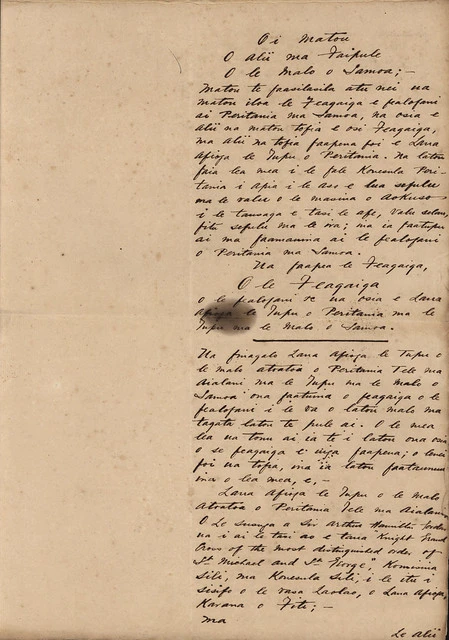 O i matou
O alii ma Faipule
O le malo o Samoa;-
Matou te faasilasila atu nei ua
matou iloa le Feagaiga e fealofani
ai Peritania ma Samoa, na osia e
alii na matou tofia e osi Feagaiga,
ma alii na tofia faapena foi e Lana
Afioga le Tupu o Peritania. Na latou
faia lea mea i le fale Konesula Peri-
tania i Apia i le aso e lua sefulu
ma le valu o le masina o Aokuso
i le tausaga e tasi le afe, valu selau,
fitu sefulu ma le iva; ina ia faatupu
ai ma faamauina ai le fealofani
o Peritania ma Samoa.
Ua faapea le Feagaiga,
O le Feagaiga
o le fealofani ua osia e Lana
Afioga le Tupu o Peritania ma le
Tupu ma le Malo o Samoa.
Ua finagalo Lana Afioga le Tupu o
le malo atoatoa o Peritania Tele ma
Aialani ma le Tupu ma le Malo o
Samoa ona faatumu o feagaiga o le
fealofani i le va o latou malo ma
tagata latou te pule ai. O le mea
lea ua tonu ai ia te i latou ona osia
o se feagaiga e uiga faapena; o lenei
foi ua tofia, ina ia latou
ina o lea mea, e,-
Lana Afioga le Tupu o le malo
Atoatoa o Peritania Tele ma Aialani
O Le Susuga a Sir Arthur Hamilton Gordon
ua i ai le tasi ao e taua Knight Grand
Cross of the most distinguished order of
St Michael and St George, Komisina
Sili, ma Konesula Sili, i le itu i
Sisifo o le vasa Laolao, o Lana Afioga,
Kavana o Fiti;-
ma
Le Alii